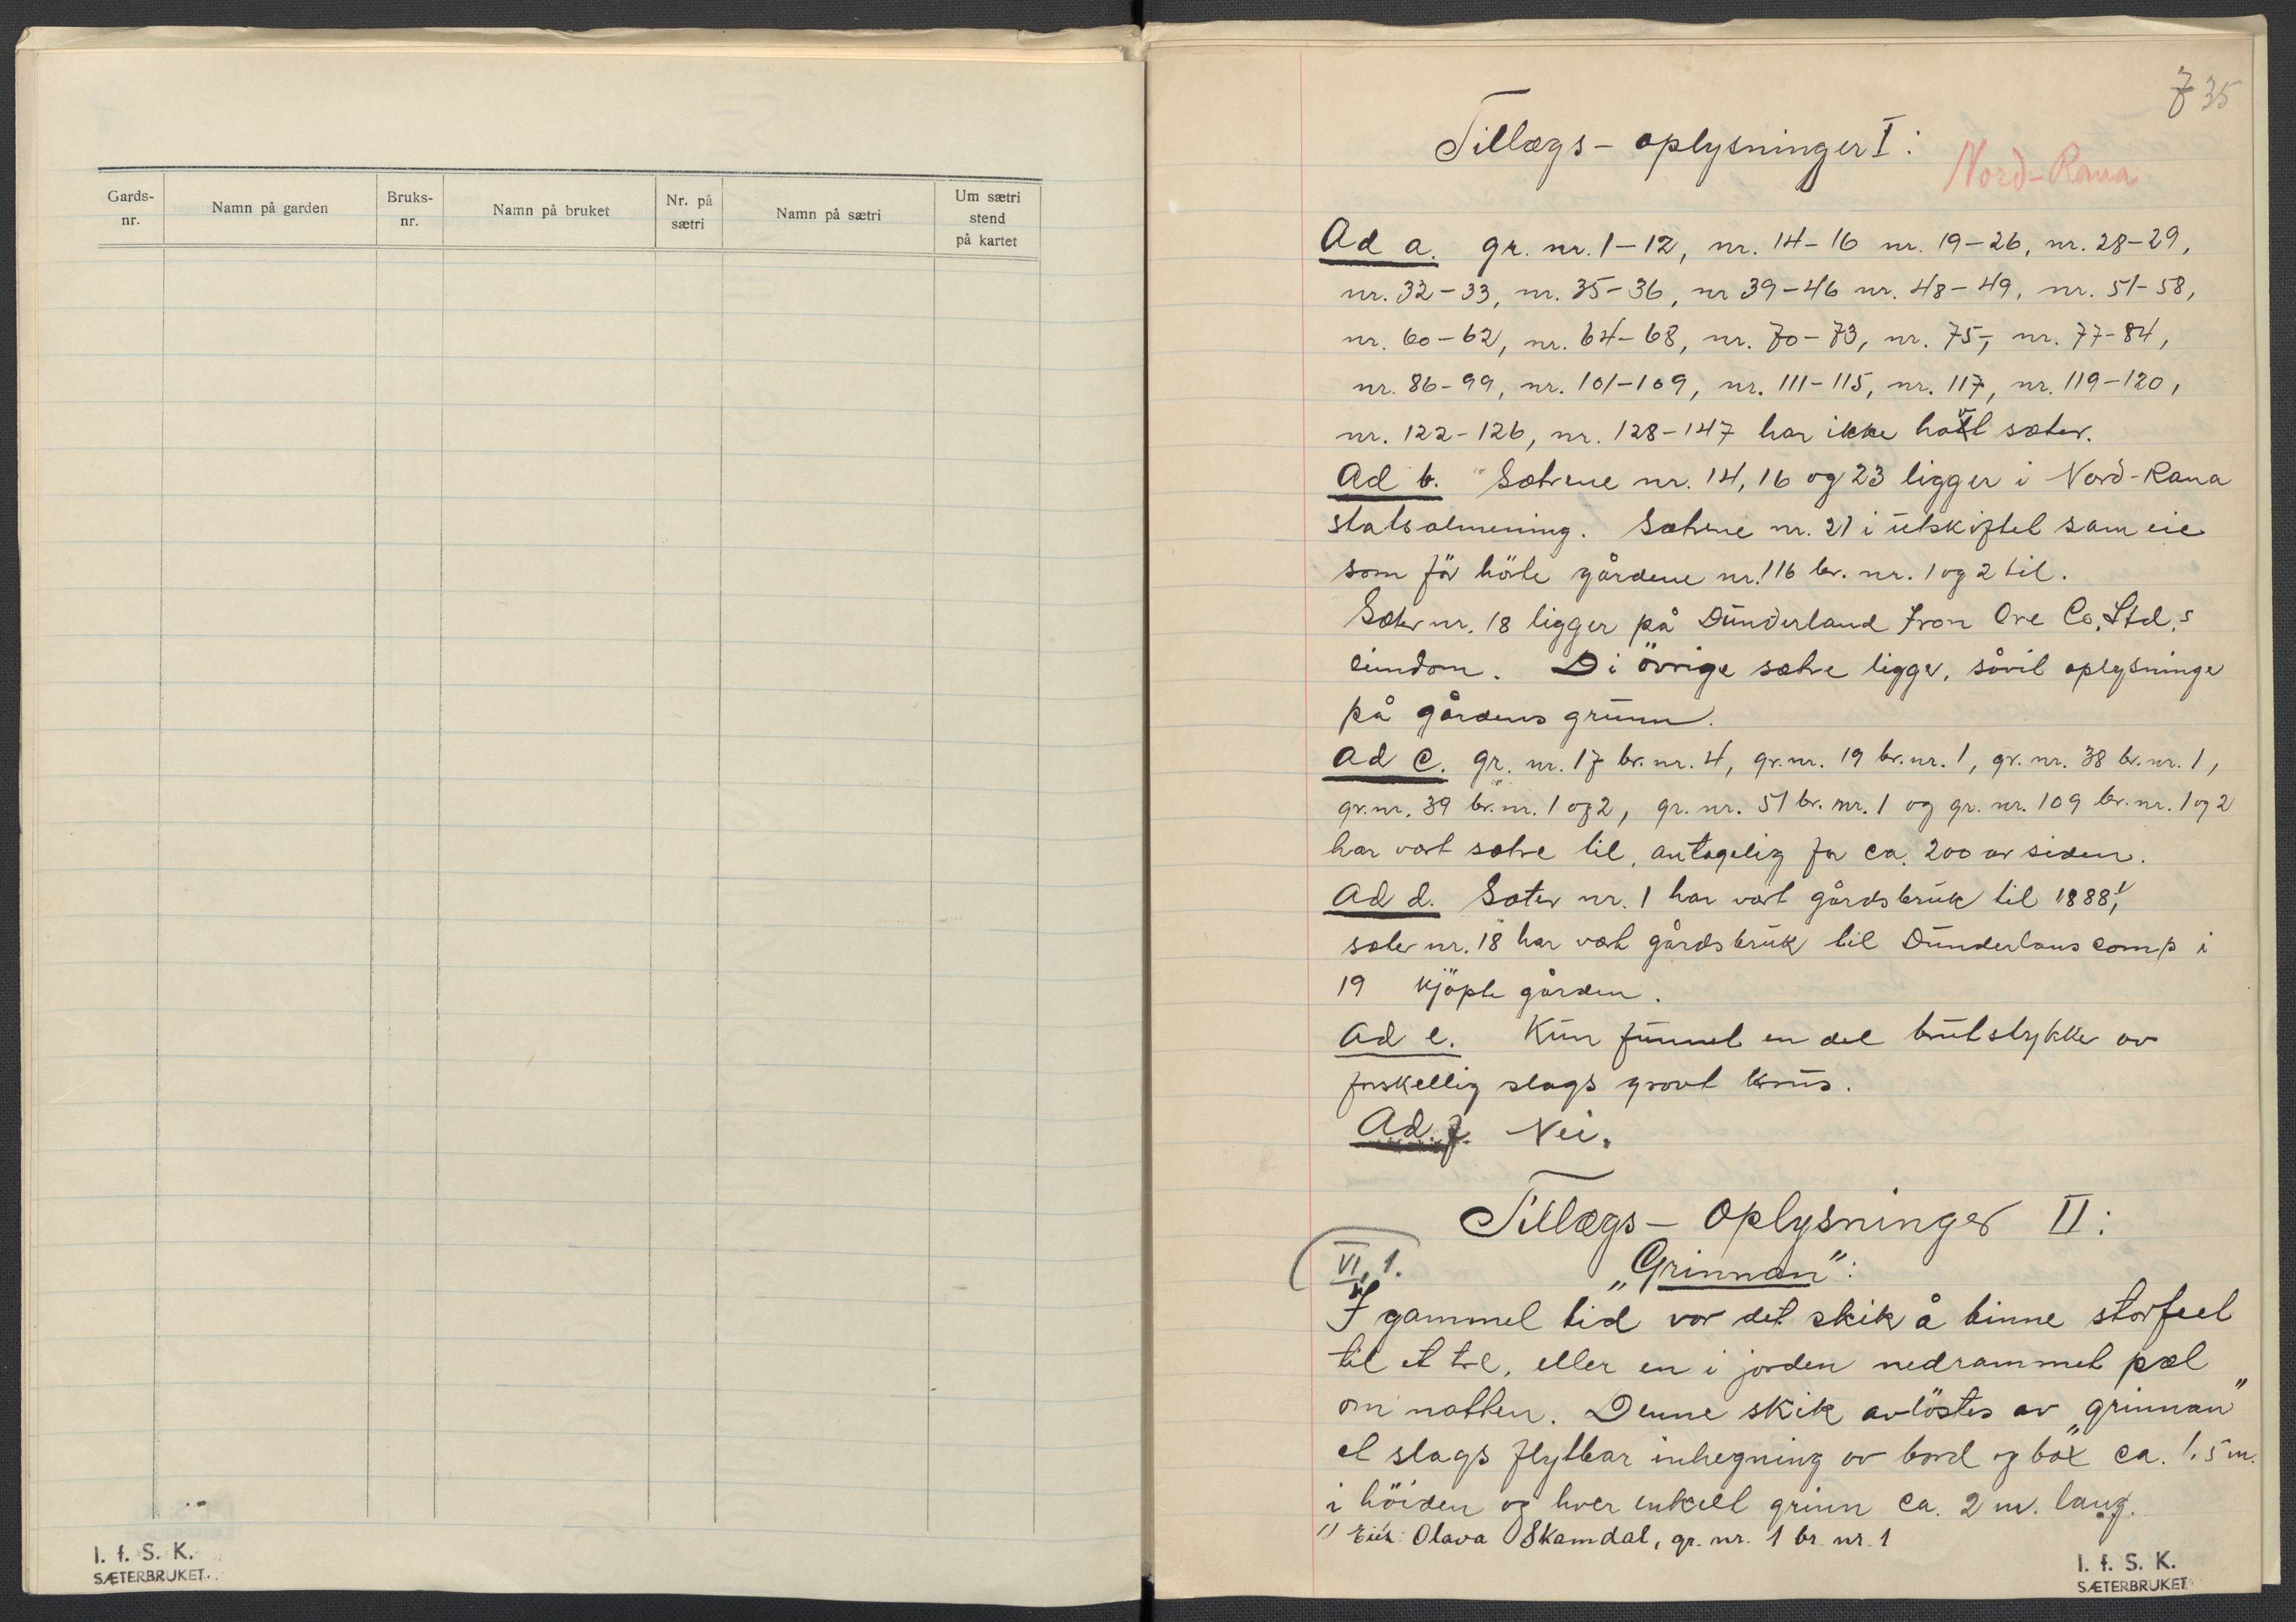 Gards-
nr.
Namn på garden
Bruks-
nr.
Namn på bruket
Nr. på
sætri
Namn på sætri
Um sætri
stend
på kartet
I. f. S. K.
SÆTERBRUKET.
35
Tillægs-oplysninger I:
Nord-Rana
Ad a. gr. nr. 1-12, nr. 14-16 nr. 19-26, nr. 28-29,
nr. 32-33, nr. 35-36, nr 39-46 nr. 48-49, nr. 51-58,
nr. 60-62, nr. 64-68, nr. 70-73, nr. 75-, nr. 77-84,
nr. 86-99, nr. 101-109, nr. 111-115, nr. 117, nr. 119-120,
nr. 122-126, nr. 128-147 har ikke havt sæter.
Ad b. Sætrene nr. 14, 16 og 23 ligger i Nord-Rana
statsalmening. Sætrene nr. 21 i utskiftet sam eie
som før hörte gårdene nr. 116 br. nr. 1 og 2 til.
Sæter nr. 18 ligger på Dunderland Iron Ore Co. Ltd.s
eiendom. Di övrige sætre ligger, såvit oplysninger
på gårdens grunn.
Ad c. gr. nr. 17 br. nr. 4, gr. nr. 19 br. nr. 1, gr. nr. 38 br. nr. 1,
gr. nr. 39 br. nr. 1 og 2, gr. nr. 51 br. nr. 1 og gr. nr. 109 br. nr. 1 og 2
har vært sætre til, antagelig for ca. 200 år siden.
Ad d. Sæter nr. 1 har vært gårdsbruk til 1888,¹⁾
sæter nr. 18 har væt gårdsbruk til Dunderlans comp i
19 kjöpte gården.
Ad e. Kun funnet en del brutstykker av
forskellig slags grovt krus.
Ad. f. Nei.
Tillægs-Oplysninger II:
VI, 1.
„Grinnan":
I gammel tid var det skik å binne storfeet
til et tre, eller en i jorden nedrammet pæl
om natten. Denne skik avlöstes av „grinnan"
et slags flytbar inhegning av bord og ca. 1,5 m.
i höiden og hver enkelt grinn ca. 2 m. lang.
1) Eier: Olava Skamdal, gr. nr. 1 br. nr. 1
I. f. S. K.
SÆTERBRUKET